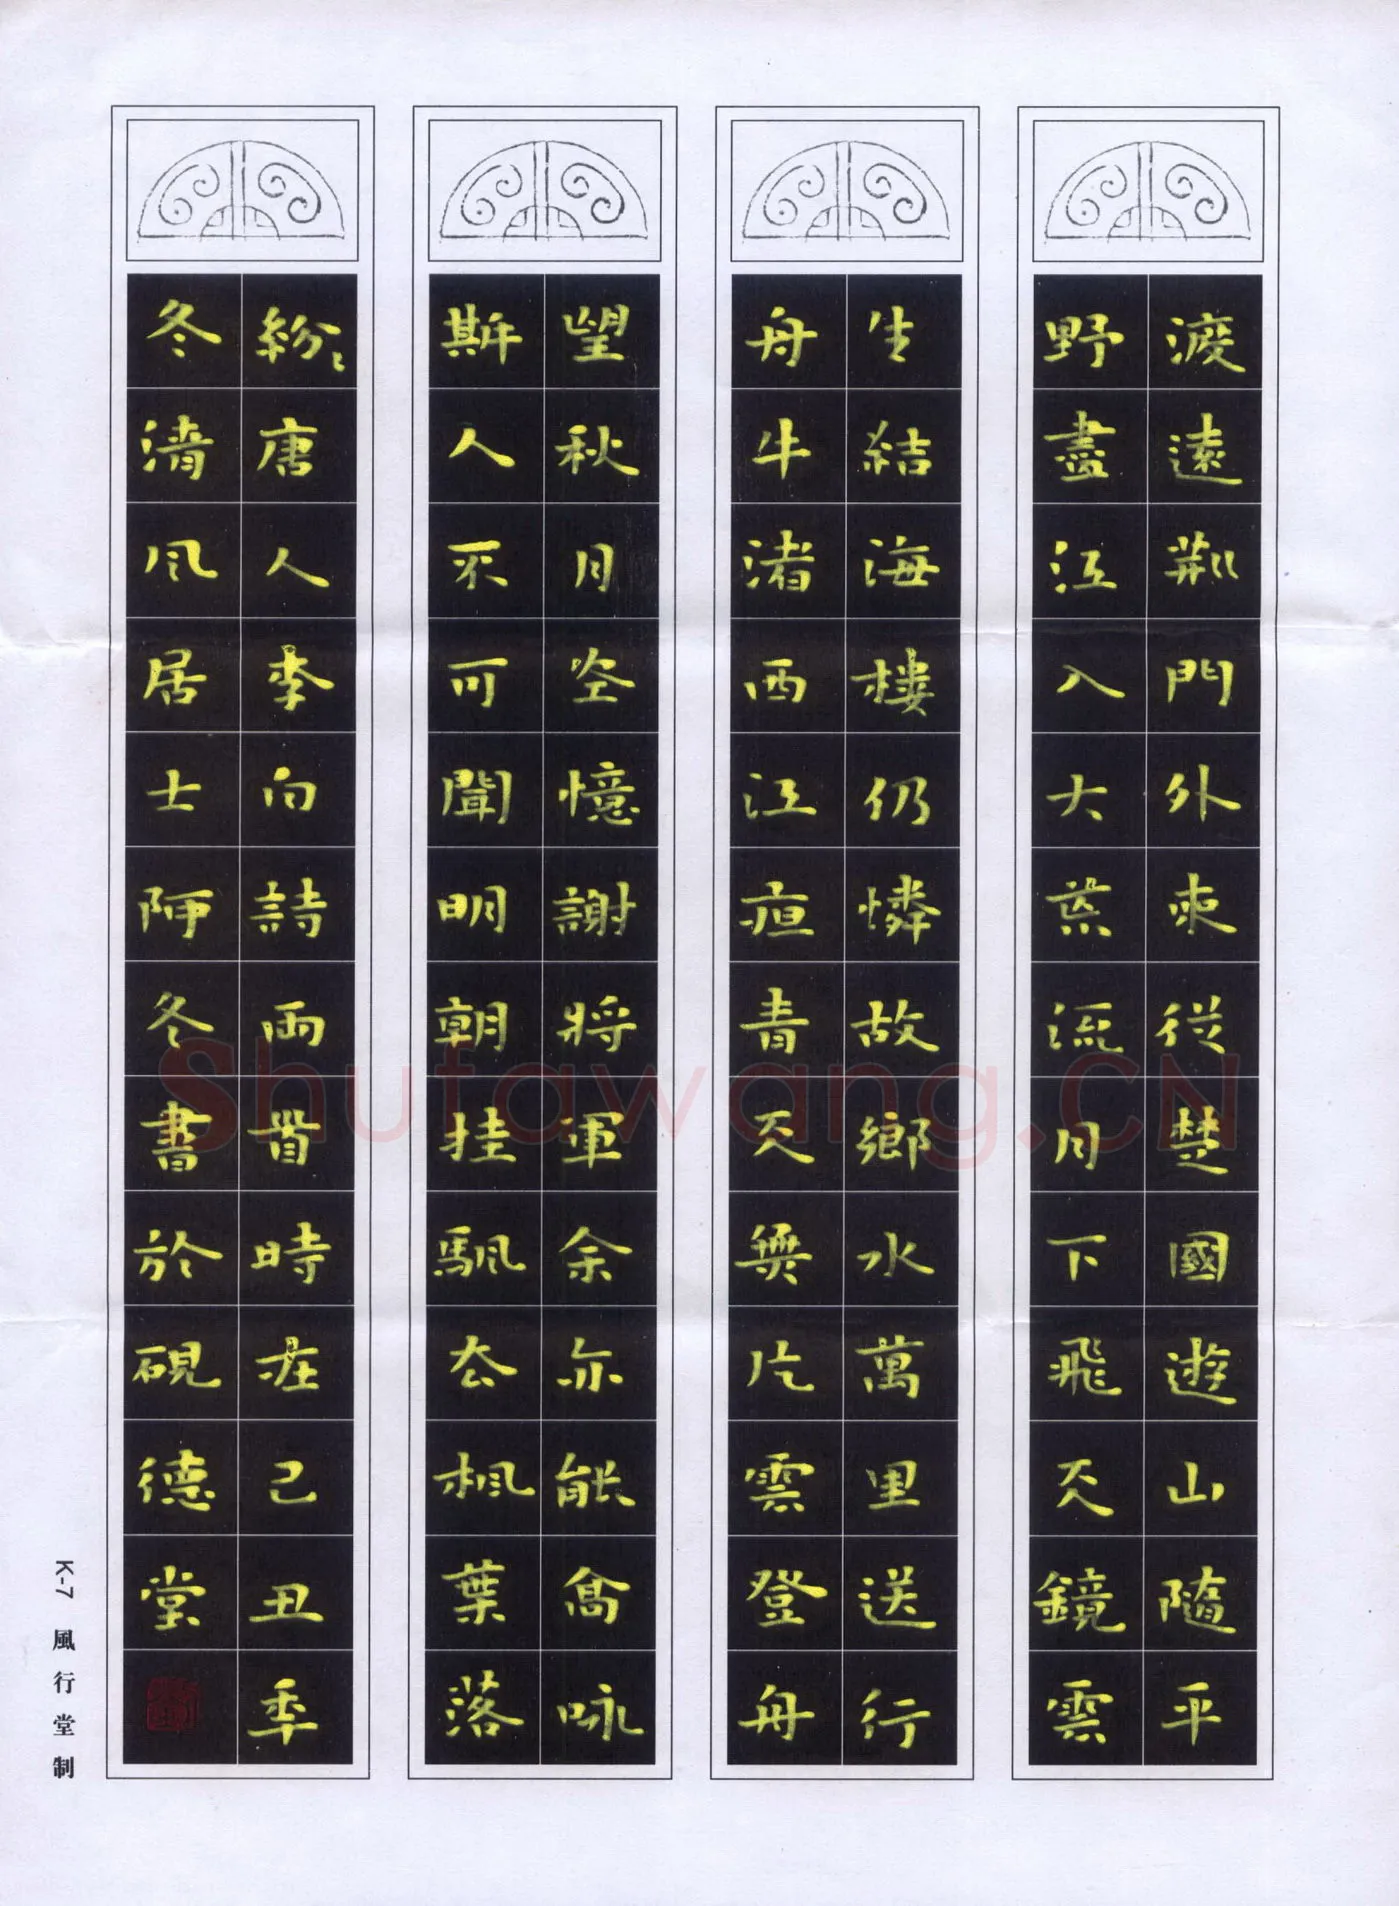 渡遠荊門外來從楚國遊山隨平
野盡江入大荒流月下飛天鏡雲
生結海樓仍憐故鄉水萬里送行
舟牛渚西江夜青天無片雲登舟
望秋月空憶謝將軍余亦能高咏
斯人不可聞明朝挂颿去楓葉落
紛〻唐人李白詩兩首時在己丑年
冬清風居士阿冬書於硯德堂
K-7 風行堂制
Shufawang.CN